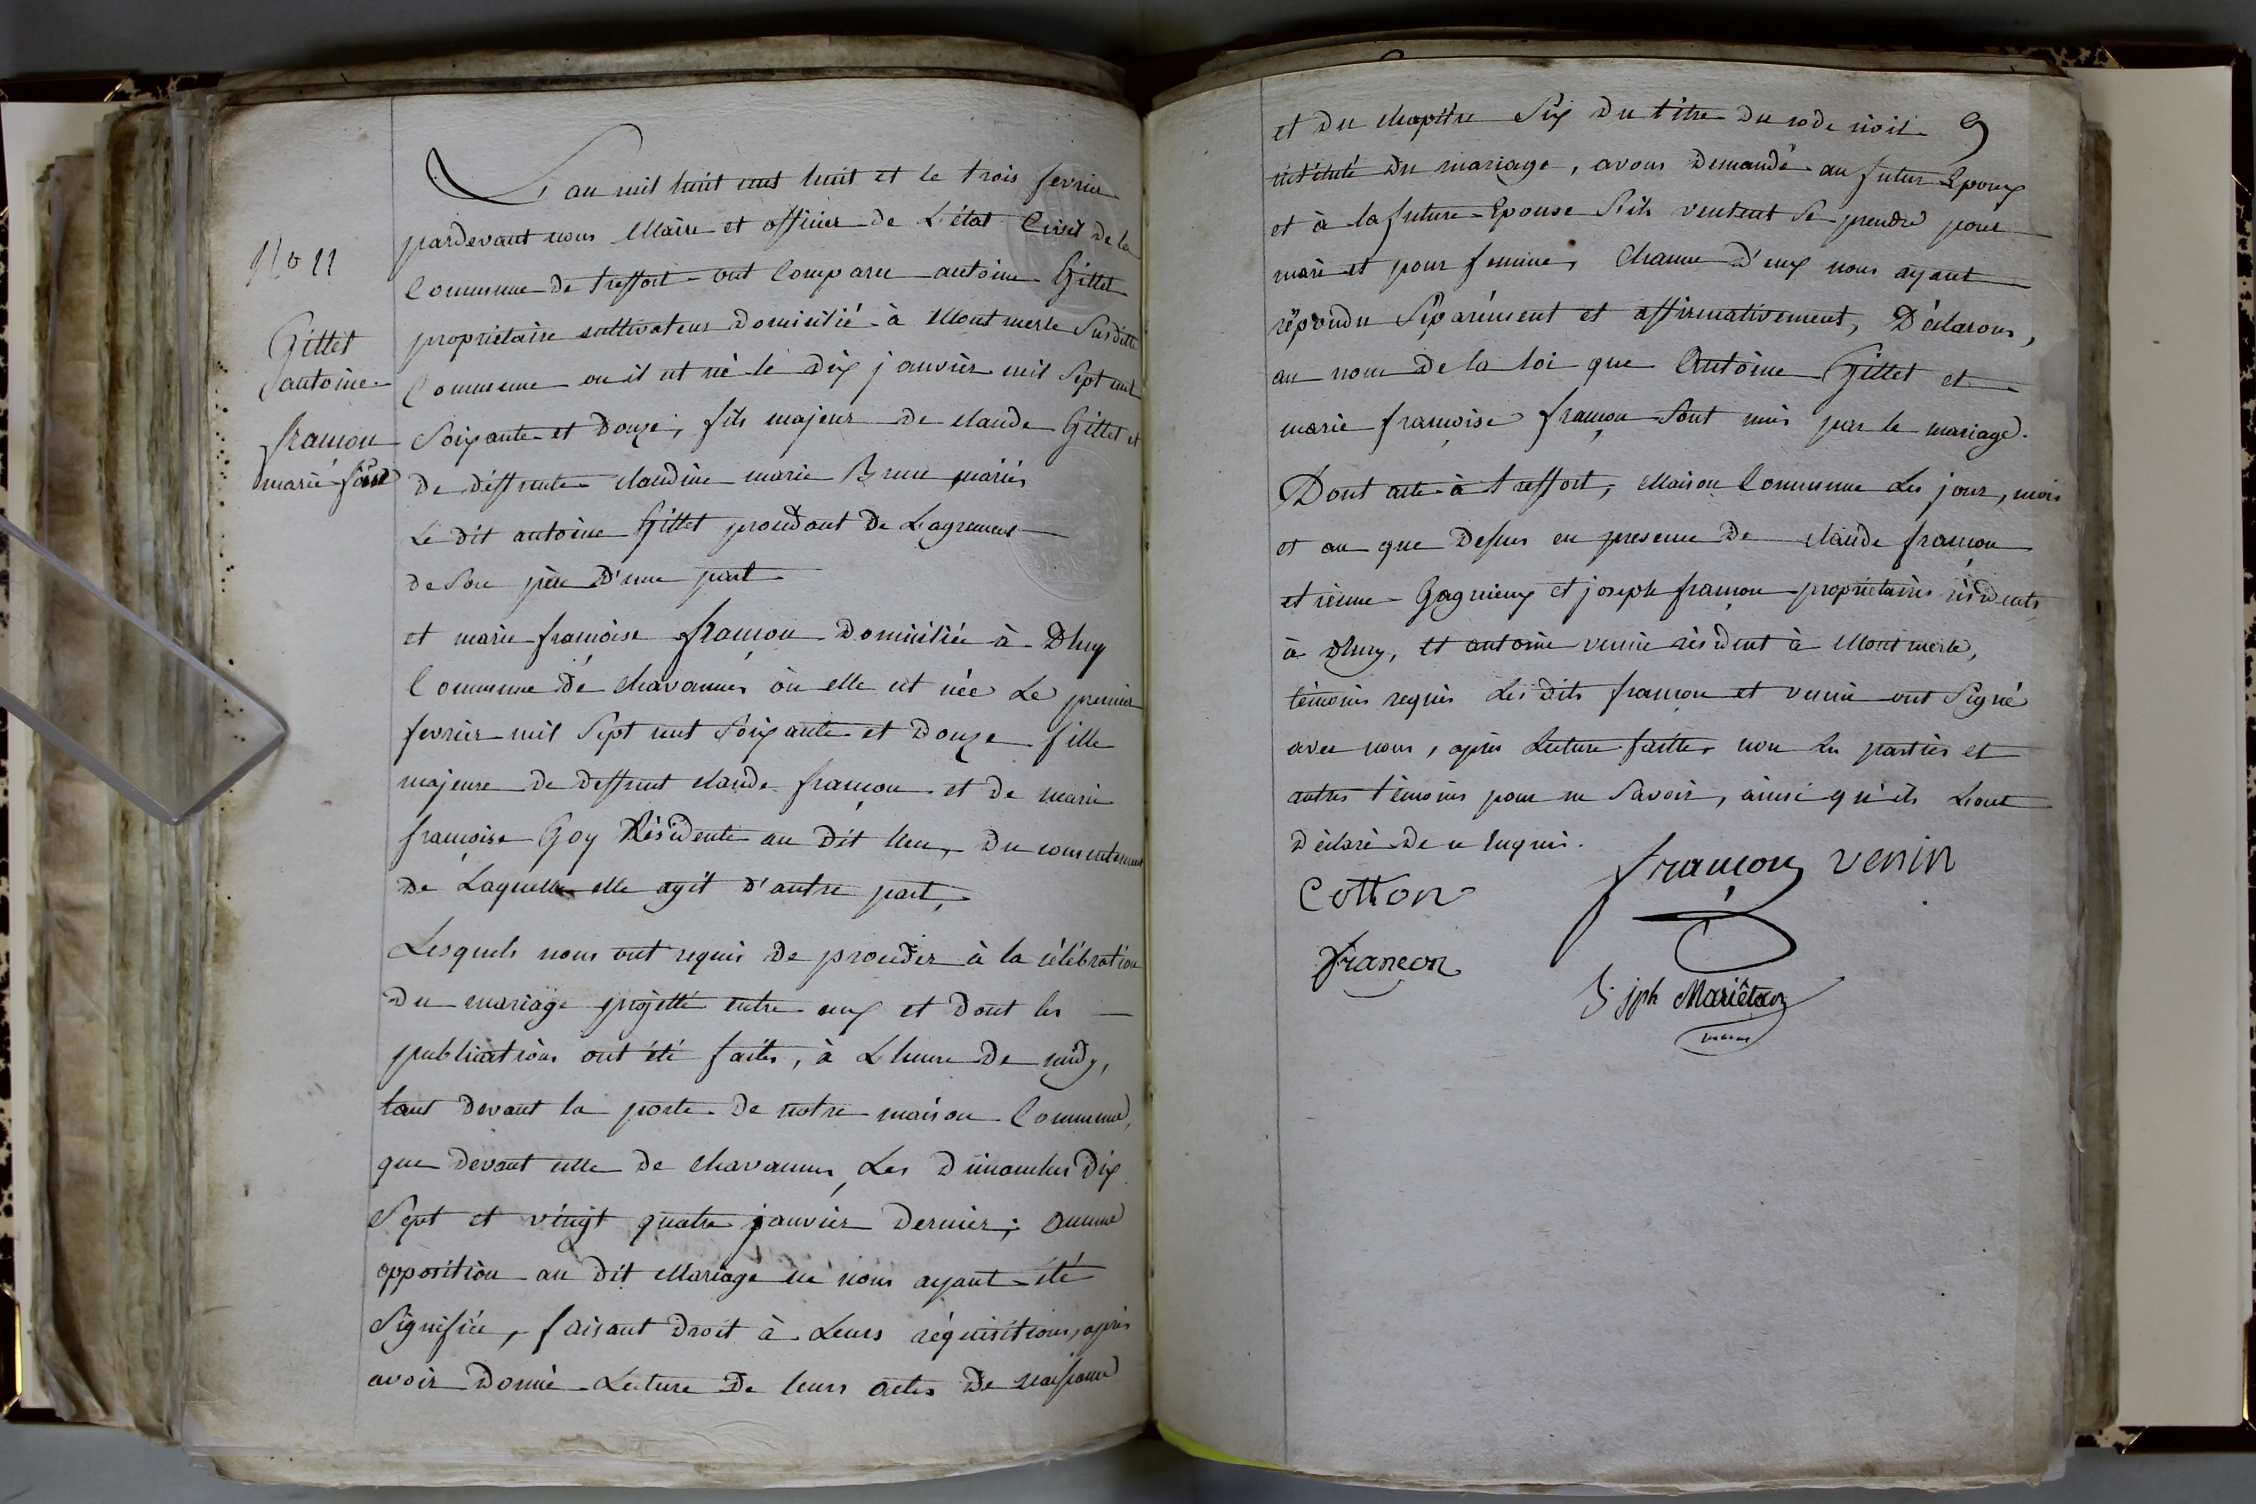 L'an mil huit cent huit et le trois fevrier
pardevant nous Maire et officier de L'état Civil de la
Commune de treffort ont Comparu antoine Gillet
propriétaire cultivateur Domicilié à Montmerle Susditte
Commune ou il est né le Dix janvier mil Sept cent
Soixante et Douze, fils majeur de claude Gillet et
de déffunte claudine marie Brun mariés
Le dit antoine Gillet procédant de Lagrement
de Son père D'une part
et marie françoise françon Domiciliée à Dhuy
Commune de chavannes où elle est née Le premier
fevrier mil Sept cent Soixante et Douze fille
majeure de deffunt claude françon et de marie
françoise Goy Résidente au dit lieu, du consentement
de Laquelle elle agit d'autre part,
Lesquels nous ont requis de procéder à la célébration
du mariage projetté entre eux et dont les
publications ont été faites, à L heure de midy,
tant devant la porte de notre maison Commune,
que devant celle de chavannes, Les Dimanches Dix
Sept et vingt quatre janvier dernier; aucune
opposition au dit Mariage ne nous ayant été
Signifiée, faisant droit à Leurs réquisitions, après
avoir donné Lecture de leurs actes de naissance
No 11
Gillet
antoine
françon
marie foise
et du chapitre Six du titre du code civil
intitulé du mariage, avons demandé au futur Epoux
et à la future Epouse S'ils veulent Se prendre pour
mari et pour femme, Chacun d'eux nous ayant
répondu Séparément et affirmativement, Déclarons,
au nom de la loi que Antoine Gillet et
marie françoise françon Sont unis par le mariage.
Dont acte à treffort, Maison Commune Les jour, mois
et an que dessus en presence de claude françon
et Gagnieux et joseph françon propriétaires résidents
à Dhuy, et antoine venin résident à Montmerle,
témoins requis Les dits françon et venin ont Signé
avec nous, après Lecture faitte, non les parties et
autres témoins pour ne Savoir, ainsi qu'ils L'ont
déclaré de ce Enquis.
9
françon venin
Cotton
françon
jph Mariéton